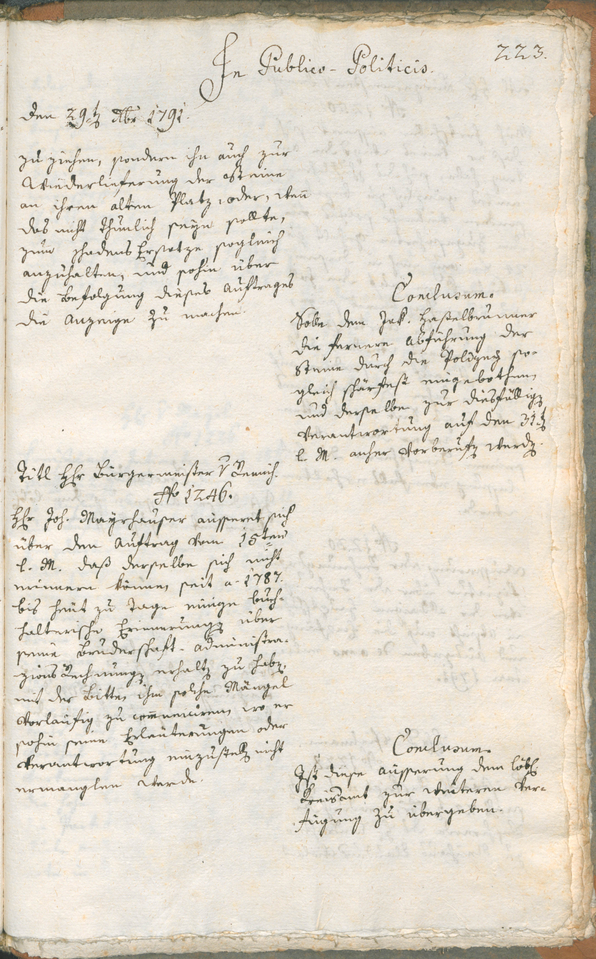 223.
In Publico-Politicis.
den 29t 8br 1791.
zu ziehen, sondern ihn auch zur
Wiederlieferung der Steine
an ihren alten Platz, oder, wen̄
das nicht thunlich seyn sollte,
zum schadens Ersatze sogleich
anzuhalten, und sohin über
die Befolgung dieses Auftrages
die Anzeige zu machen
Conclusum.
Seÿe dem Jak. Haselbrunner
die fernere Abführung der
Steine durch die Polizeÿ so-
gleich schärfest eingebothen,
und derselbe zur diesfällig
Verantwortung auf den 31t
l. M. anher Vorberufen werde.
Titl Hr Bürgermeister v
No 1246.
Hr Joh. Mayrhauser äussert sich
über den Auftrag vom 15ten
l. M. daß derselbe sich nicht
erinnern könne, seit a. 1787.
bis heut zu Tage einige buch-
halterische Erinnerungen über
seine Bruderschaft-Administra-
zions Rechnungen erhalten zu haben,
mit der Bitte, ihm solche Mängel
Vorläufig zu com̄uniciren, wo er
sohin seine Erläuterungen oder
Verantwortung einzustellen nicht
ermanglen werde.
Conclusum.
Ist diese äusserung dem löbl.
Kreisamt zur weiteren Ver-
fügung zu übergeben.